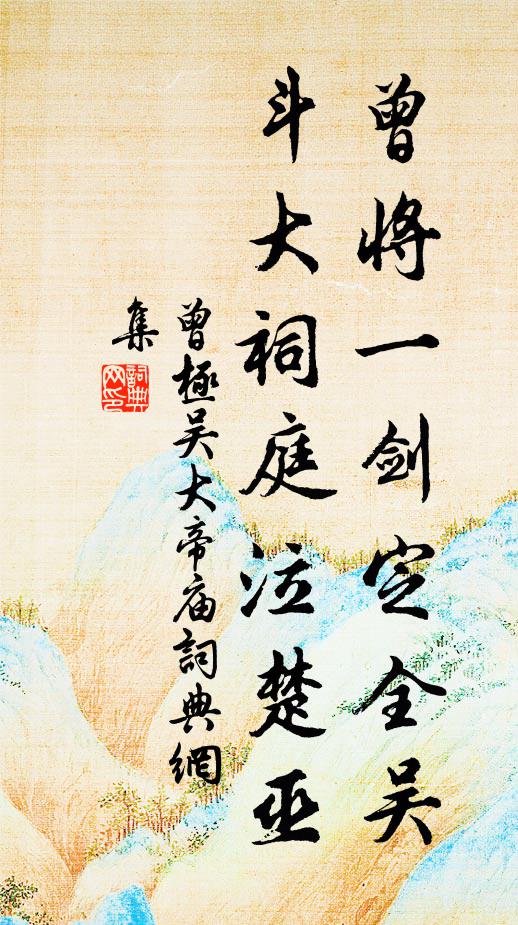 曾将一剑定全吴
斗大祠庭泣楚巫
曾極吴大帝庙詞典網
集
詞典
网印